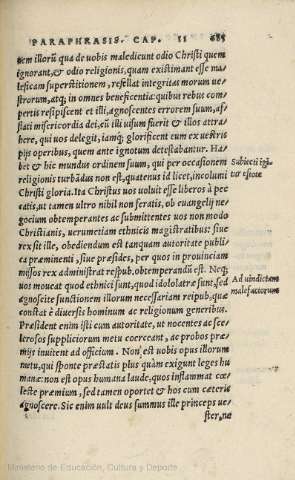 PARAPHRASIS. CAP. II 685
nem illorũ qua de uobis maledicunt odio Christi quem
ignorant, & odio religionis, quam existimant esse ma-
leficam superstitionem, refellat integritas morum ue-
strorum, atq; in omnes beneficentia: quibus rebus com
pertis resipiscent et illi, agnoscentes errorem suum, af-
flati misericordia dei, eũ illi uisum fuerit & illos attra-
here, qui uos delegit, iamq; glorificent eum ex uestris
pijs operibus, quem ante ignotum detestabantur. Ha-
bet & hic mundus ordinem suum, qui per occasionem
Subiecti igi-
religionis turbãdus non est, quatenus id licet, incolumi
tur estote
Christi gloria. Ita Christus uos uoluit esse liberos à pec
catis, ut tamen ultro nihil non feratis, ob euangelij ne-
gocium obtemperantes ac submittentes uos non modo
Christianis, uerumetiam ethnicis magistratibus: siue
rex sit ille, obediendum est tanquam autoritate publi-
ca præeminenti, siue præsides, per quos in prouinciam
missos rex administrat resput. obtemperandũ est. Neq;
Ad uindictam
uos moueat quod ethnici sunt, quod idololatræ sunt, sed
malefactorum
agnoscite functionem illorum necessariam reipub. quæ
constat è diuersis hominum ac religionum generibus.
Præsident enim isti cum autoritate, ut nocentes ac sce-
lerosos suppliciorum metu coerceant, ac probos præ-
mijs inuitent ad officium. Non est uobis opus illorum
metu, qui sponte præstatis plus quàm exigunt leges hu
manæ: non est opus humana laude, quos inflammat cœ-
leste præmium, sed tamen oportet & hos cum cæteris
agnoscere. Sic enim uult deus summus ille princeps ue-
ster, ne
Ministerio de Educación, Cultura y Deporte